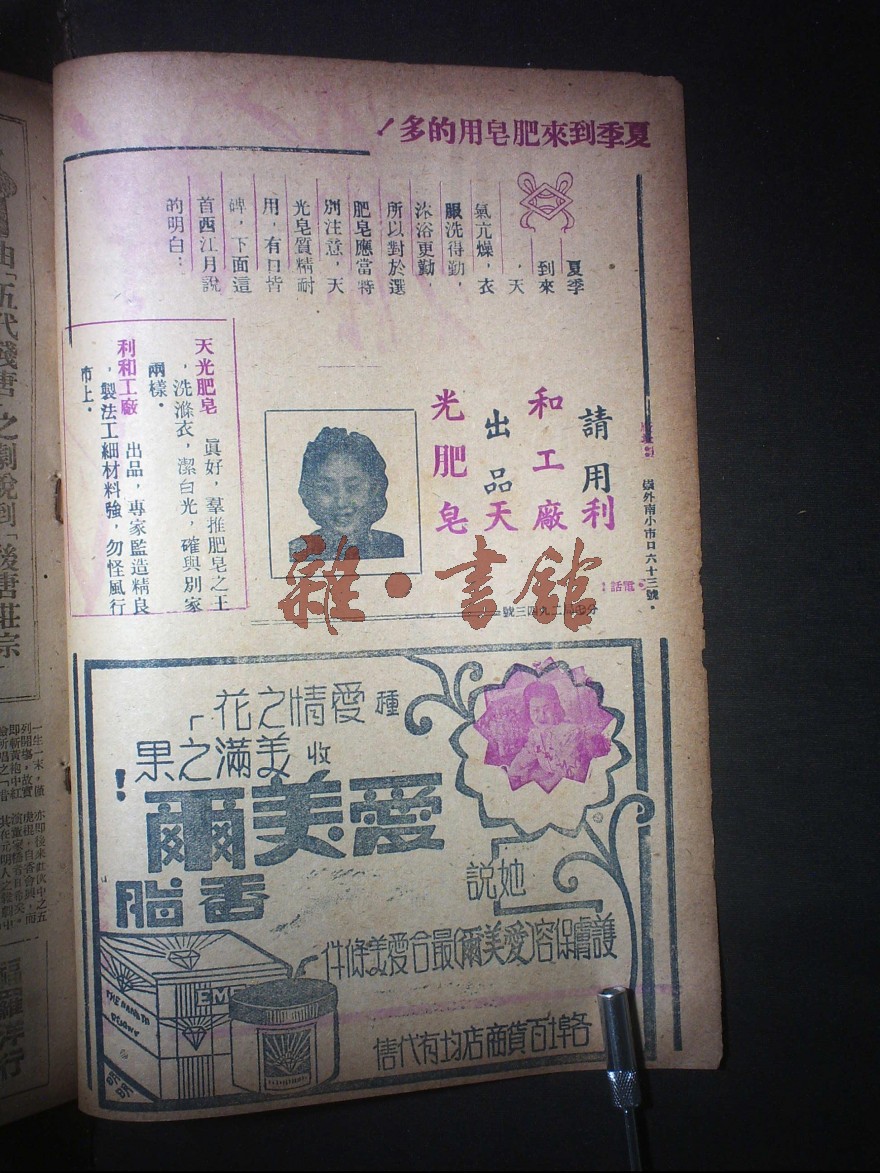 夏季到來肥皂用的多！
夏季
到來
，天
氣亢燥，衣
服洗得勤，
沐浴更勤，
所以對於選
肥皂應當特
別注意，天
光皂質精耐
用，有口皆
碑，下面這
首西江月說
的明白：
天光肥皂　真好，羣推肥皂之王
，洗滌衣，潔白光，確與別家
兩樣．
利和工廠　出品，專家監造精良
，製法工細材料強，勿怪風行
市上．
請用利
和工廠
出品天
光肥皂
崇外南小市口六十三號．
電話：
二九四三號
雜·書館
種愛情之花「
收美滿之果
！
愛美爾
香脂
她說
護膚保容(愛美爾)最合愛美條件
各埠百貨商店均有代售
明明
由「五代殘唐」之劇說到「後唐莊宗
洋行